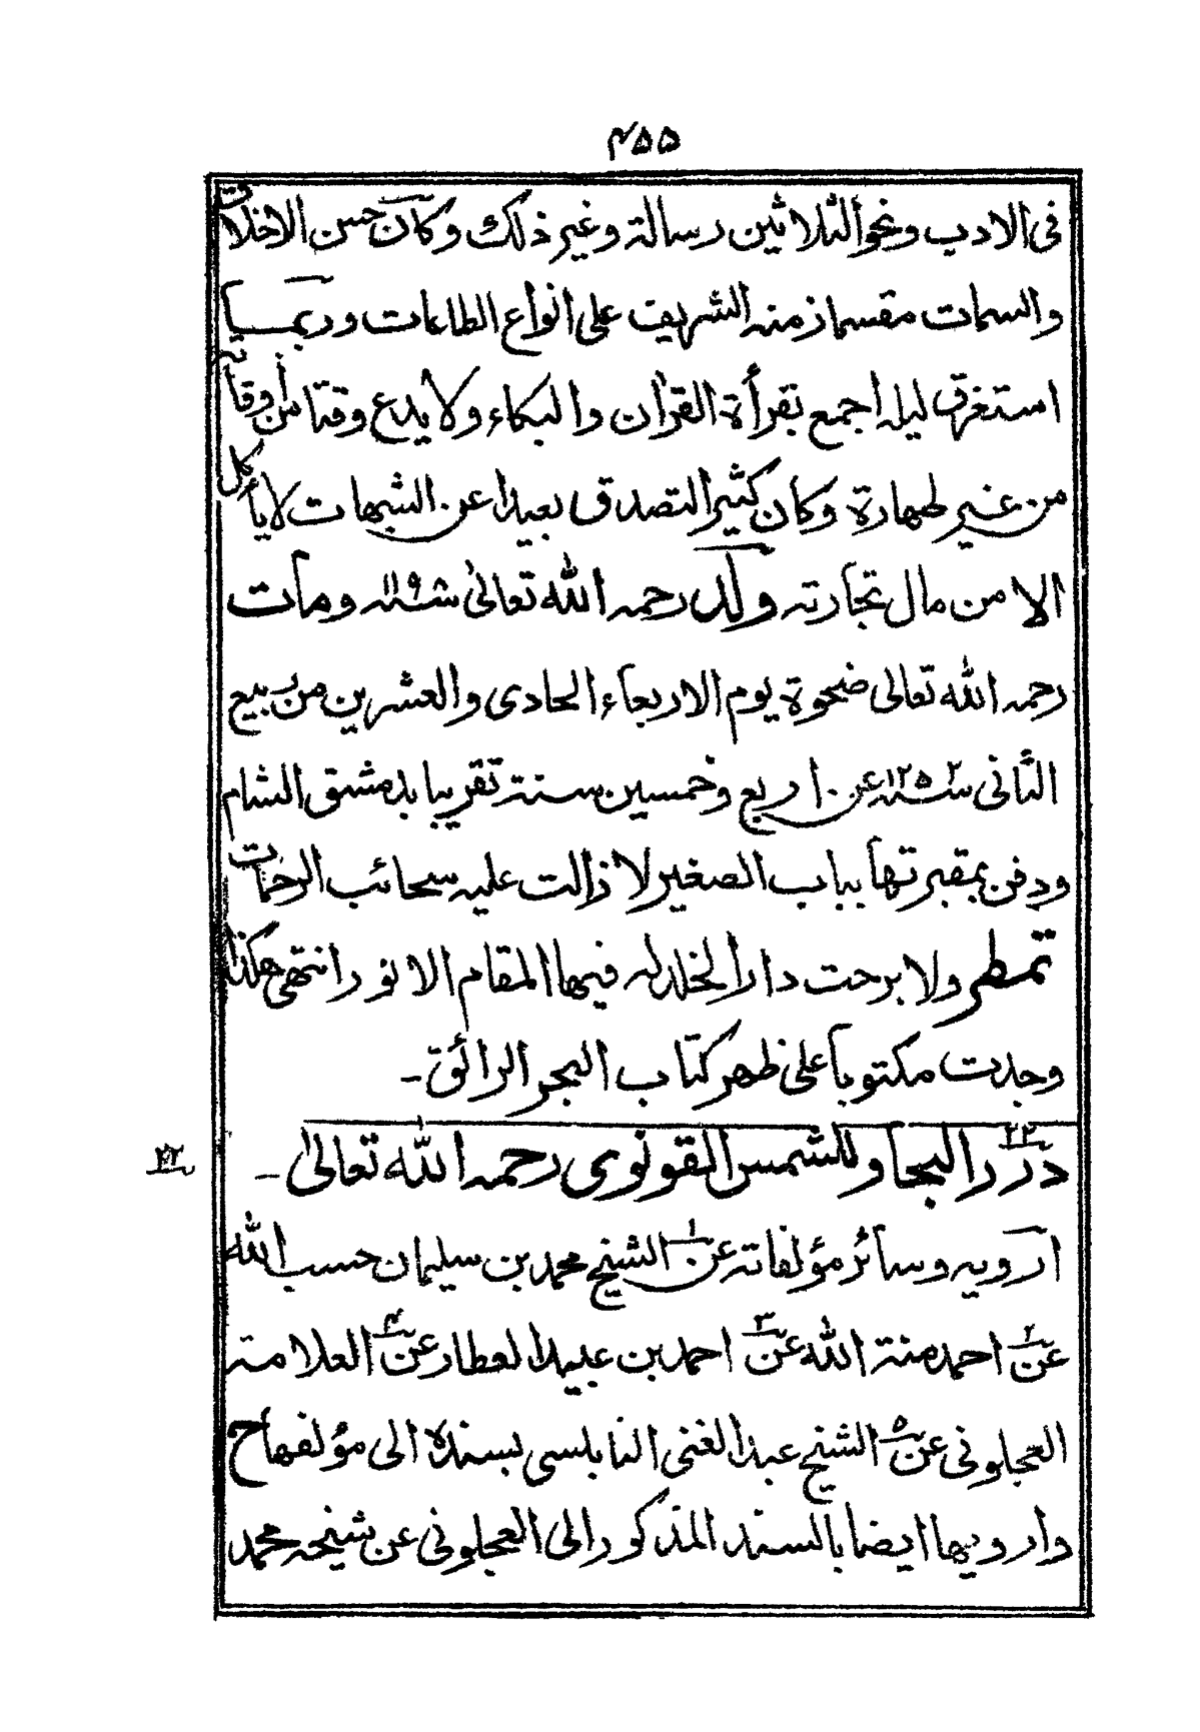 ۴۵۵
فى الادب ونحو الثلاثين رسالة وغير ذلك وكان حسن الاخلاق
والسمات مقسما زمنه الشريف على انواع الطاعات وربما
استغرق ليله اجمع بقرأة القرأن والبكاء ولا يدع وقتا من أوقاته
من غير طهارة وكان كثير التصدق بعيدا عن الشبهات لا يأكل
الا من مال تجارته ولد رحمه الله تعالى سنة ١١٩٨ ومات
رحمه الله تعالى ضحوة يوم الاربعاء الحادى والعشرين من ربيع
الثانى سنة ١٢٥٢ عن اربع وخمسين سنة تقريبا بدمشق الشام
ودفن بمقبرتها بباب الصغير لا زالت عليه سحائب الرحمات
تمطر ولا برحت دار الخلد له فيها المقام الانور انتهى هكذا
وجدت مكتوبا على ظهر كتاب البحر الرائق ـ
٢٢ درر البحار للشمس القونوى رحمه الله تعالى ـ
٢٢
ارويه وسائر مؤلفاته عن ١ الشيخ محمد بن سليمان حسب الله
عن ٢ احمد منة الله عن ٣ احمد بن عبيد العطار عن ٤ العلامة
العجلونى عن ٥ الشيخ عبد الغنى النابلسى بسنده الى مؤلفها ح
وارويها ايضا بالسند المذكور الى العجلونى عن شيخه محمد